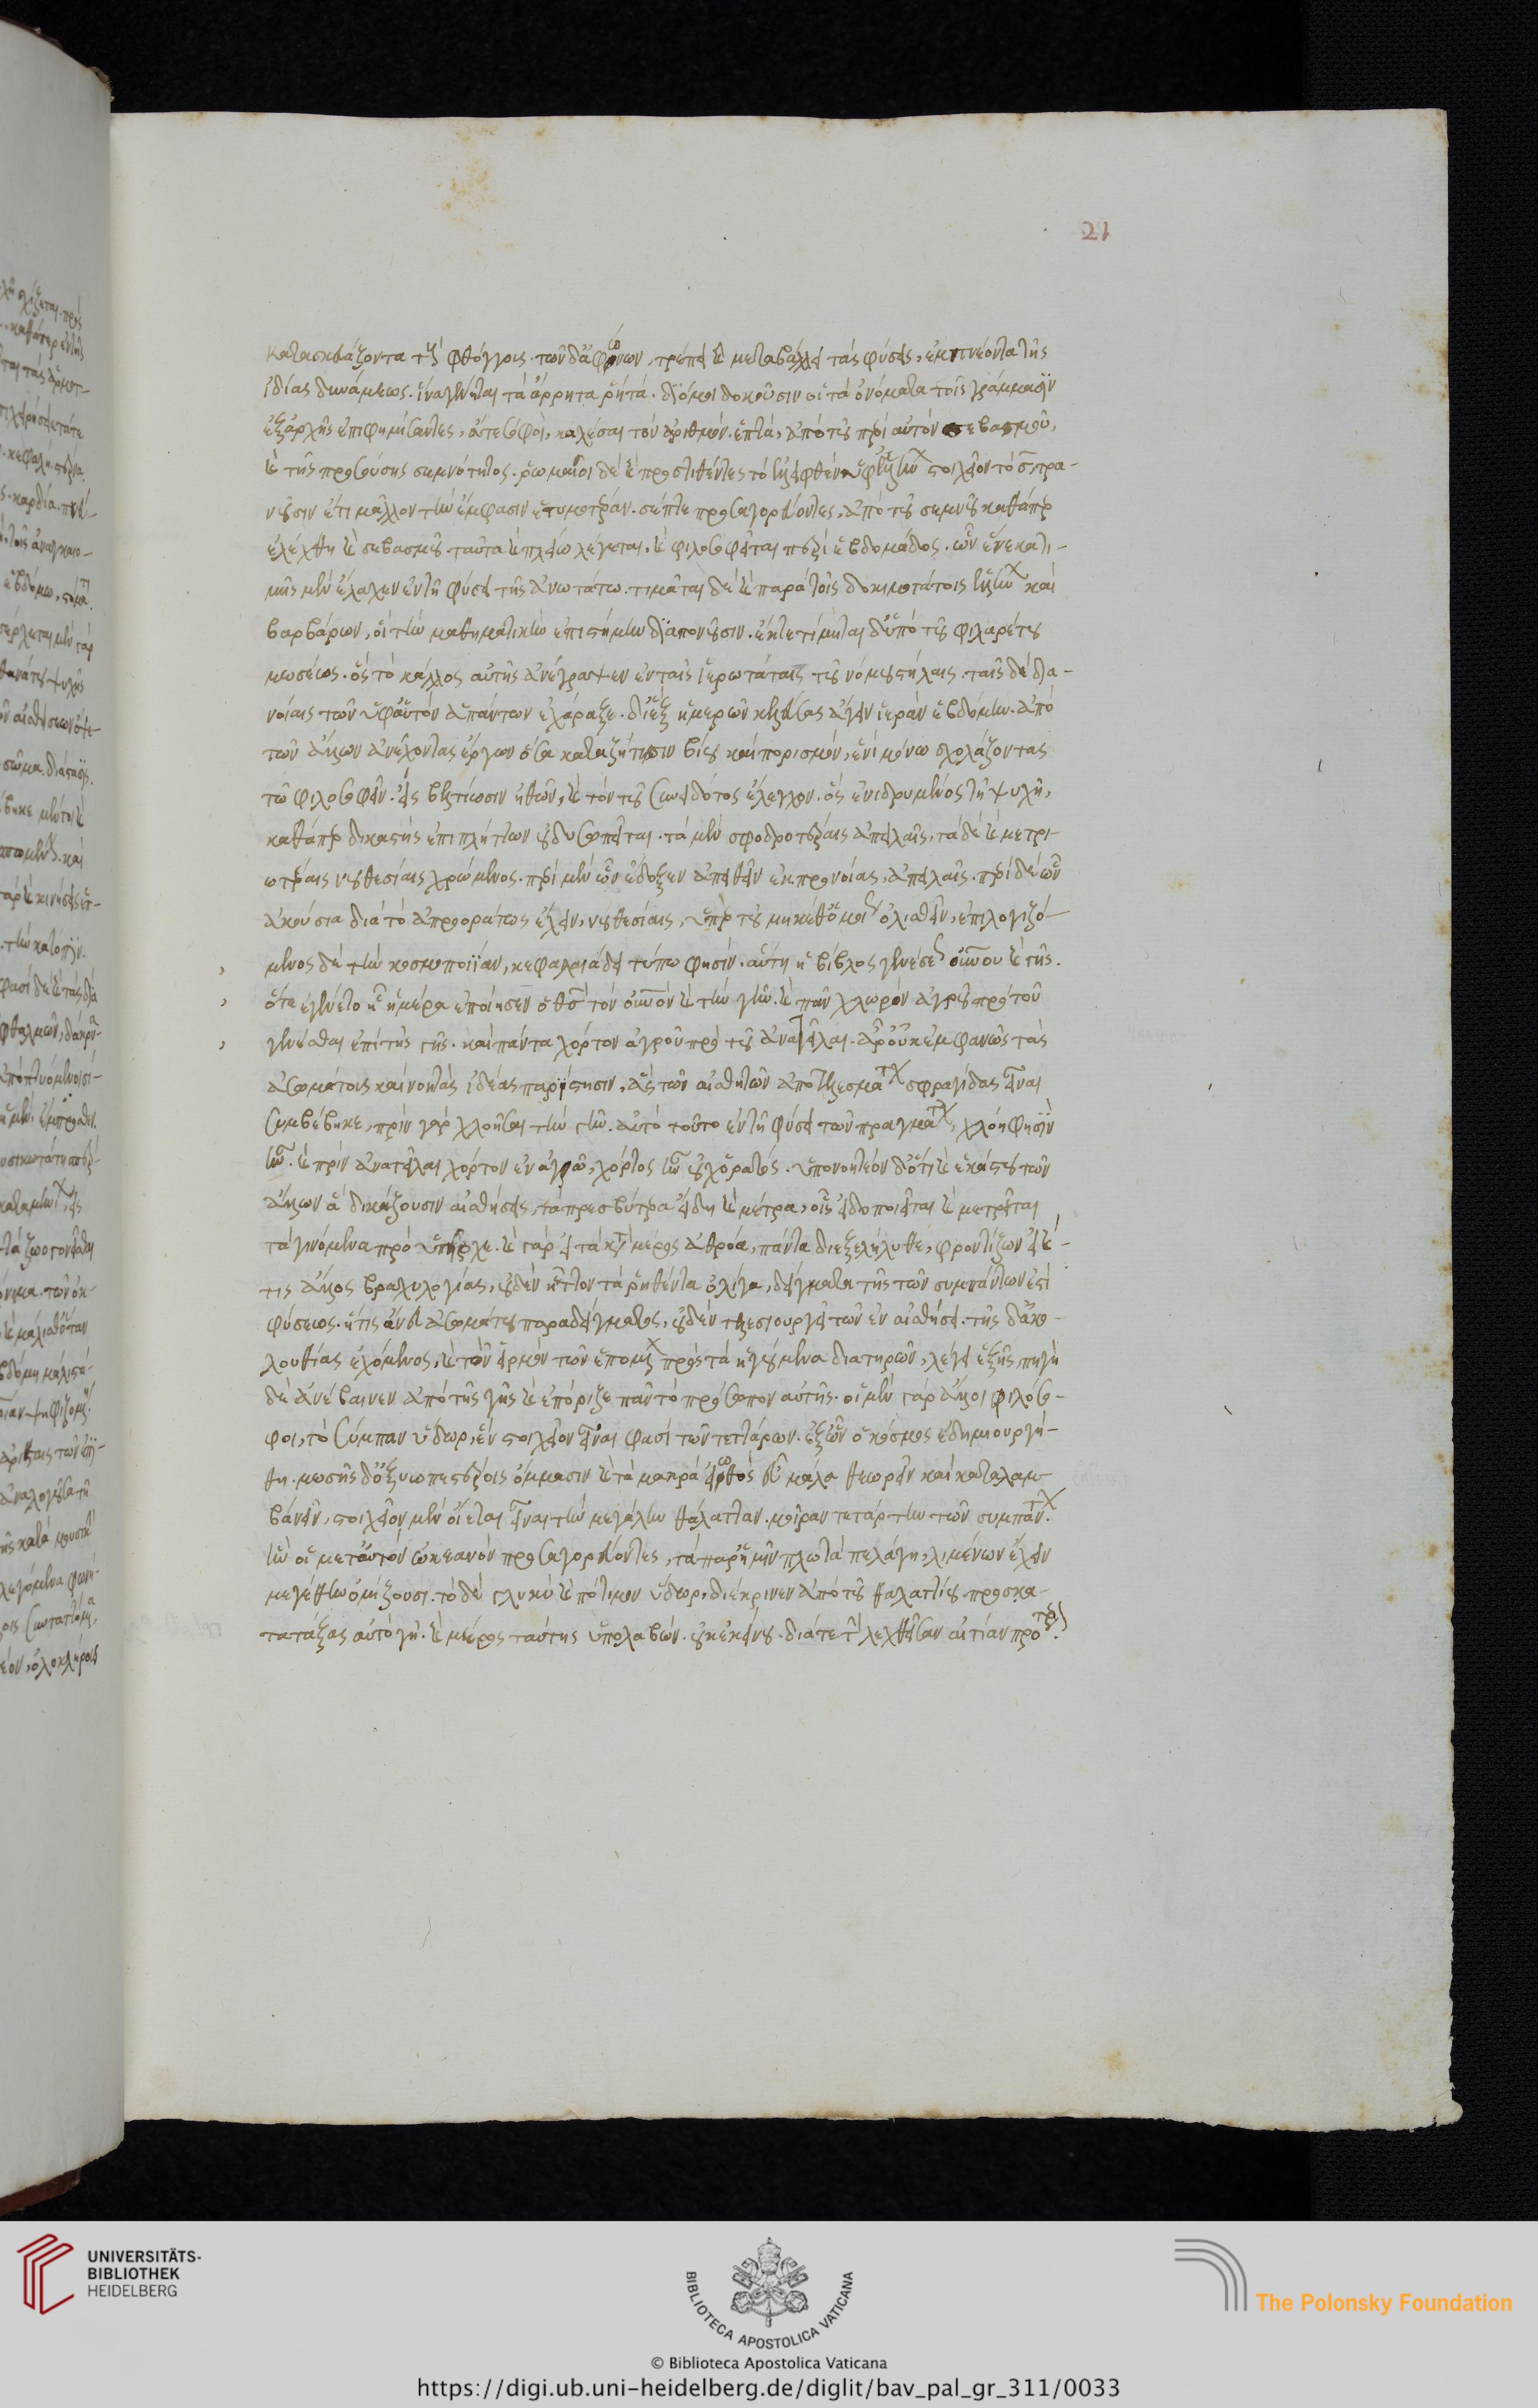 21
κατασκευάζοντα τοῖς φθόγγοις. τῶν δ' ἀφώνων, τρέπει καὶ μεταβάλλει τὰς φύσεις, ἐμπνέοντα τῆς
ἰδίας δυνάμεως. ἵνα γένηται τὰ ἄρρητα ῥητά. διό μοι δοκοῦσιν οἱ τὰ ὀνόματα τοῖς γράμμασιν
ἐξ ἀρχῆς ἐπιφημίσαντες, ἅτε σοφοὶ, καλέσαι τὸν ἀριθμὸν ἑπτὰ, ἀπὸ τοῦ περὶ αὐτὸν σεβασμοῦ,
καὶ τῆς προσούσης σεμνότητος. ῥωμαῖοι δὲ καὶ προστιθέντες τὸ ἐλλειφθὲν ὑφ' ἑλλήνων στοιχεῖον τὸ σ, τρα-
νοῦσιν ἔτι μᾶλλον τὴν ἔμφασιν ἐτυμώτερον. σέπτε προσαγορεύοντες, ἀπὸ τοῦ σεμνοῦ καθάπερ
ἐλέχθη καὶ σεβασμοῦ. ταῦτα καὶ πλείω λέγεται, καὶ φιλοσοφεῖται περὶ ἑβδομάδος. ὧν ἕνεκα τι-
μὰς μὲν ἔλαχεν ἐν τῇ φύσει τὰς ἀνωτάτω. τιμᾶται δὲ καὶ παρὰ τοῖς δοκιμωτάτοις ἑλλήνων καὶ
βαρβάρων, οἳ τὴν μαθηματικὴν ἐπιστήμην διαπονοῦσιν. ἐκτετίμηται δ' ὑπὸ τοῦ φιλαρέτου
μωσέως. ὃς τὸ κάλλος αὐτῆς ἀνέγραψεν ἐν ταῖς ἱερωτάταις τοῦ νόμου στήλαις. ταῖς δὲ δια-
νοίαις τῶν ὑφ' αὑτὸν ἁπάντων ἐχάραξε. δι' ἓξ ἡμερῶν κελεύσας ἄγειν ἱερὰν ἑβδόμην. ἀπὸ
τῶν ἄλλων ἀνέχοντας ἔργων ὅσα κατὰ ζήτησιν βίου καὶ πορισμὸν, ἑνὶ μόνῳ σχολάζοντας
τῷ φιλοσοφεῖν. εἰς βελτίωσιν ἠθῶν, καὶ τὸν τοῦ συνειδότος ἔλεγχον. ὃς ἐνιδρυμένος τῇ ψυχῇ,
καθάπερ δικαστὴς ἐπιπλήττων οὐ δυσωπεῖται. τὰ μὲν σφοδροτέραις ἀπειλαῖς, τὰ δὲ καὶ μετρι-
ωτέραις νουθεσίαις χρώμενος. περὶ μὲν ὧν ἔδοξεν ἀπειθεῖν ἐκ προνοίας, ἀπειλαῖς. περὶ δὲ ὧν
ἀκούσια διὰ τὸ ἀπροοράτως ἔχειν, νουθεσίαις, ὑπὲρ τοῦ μηκέθ' ὁμοίως ὀλισθεῖν, ἐπιλογιζό-
μενος δὲ τὴν κοσμοποιΐαν, κεφαλαιώδει τύπῳ φησίν. αὕτη ἡ βίβλος γενέσεως οὐνου καὶ γῆς.
ὅτε ἐγένετο ᾗ ἡμέρᾳ ἐποίησεν ὁ θς τὸν οὐνον καὶ τὴν γῆν. καὶ πᾶν χλωρὸν ἀγροῦ πρὸ τοῦ
γενέσθαι ἐπὶ τῆς γῆς. καὶ πάντα χόρτον ἀγροῦ πρὸ τοῦ ἀνατεῖλαι. ἆρ' οὐκ ἐμφανῶς τὰς
ἀσωμάτους καὶ νοητὰς ἰδέας παρίστησιν, ἃς τῶν αἰσθητῶν ἀποτελεσμάτων σφραγίδας εἶναι
συμβέβηκε, πρὶν γὰρ χλοῆσαι τὴν γῆν. αὐτὸ τοῦτο ἐν τῇ φύσει τῶν πραγμάτων, χλόη φησὶν
ἦν. καὶ πρὶν ἀνατεῖλαι χόρτον ἐν ἀγρῷ, χόρτος ἦν οὐχ ὁρατός. ὑπονοητέον δ' ὅτι καὶ ἑκάστου τῶν
ἄλλων ἃ δικάζουσιν αἰσθήσεις, τὰ πρεσβύτερα εἴδη καὶ μέτρα, οἷς εἰδοποιεῖται καὶ μετρεῖται
τὰ γινόμενα προϋπῆρχε. καὶ γὰρ εἰ τὰ κατὰ μέρος ἀθρόα, πάντα διεξελήλυθε, φροντίζων εἰ καὶ
τις ἄλλος βραχυλογίας, οὐδὲν ἧττον τὰ ῥηθέντα ὀλίγα, δείγματα τῆς τῶν συμπάντων ἐστὶ
φύσεως. ἥτις ἄνευ ἀσωμάτου παραδείγματος, οὐδὲν τελεσιουργεῖ τῶν ἐν αἰσθήσει. τῆς δ' ἀκο-
λουθίας ἐχόμενος, καὶ τὸν εἱρμὸν τῶν ἑπομένων πρὸς τὰ ἡγούμενα διατηρῶν, λέγει ἑξῆς, πηγὴ
δὲ ἀνέβαινεν ἀπὸ τῆς γῆς καὶ ἐπότιζε πᾶν τὸ πρόσωπον αὐτῆς. οἱ μὲν γὰρ ἄλλοι φιλόσο-
φοι, τὸ σύμπαν ὕδωρ, ἓν στοιχεῖον εἶναι φασὶ τῶν τεττάρων. ἐξ ὧν ὁ κόσμος ἐδημιουργή-
θη. μωσῆς δ' ὀξυωπεστέροις ὄμμασιν καὶ τὰ μακρὰ εἰωθὼς εὖ μάλα θεωρεῖν καὶ καταλαμ-
βάνειν, στοιχεῖον μὲν οἴεται εἶναι τὴν μεγάλην θάλατταν. μοῖραν τετάρτην τῶν συμπάντων.
ἣν οἱ μετ' αὐτὸν ὠκεανὸν προσαγορεύοντες, τὰ παρ' ἡμῖν πλωτὰ πελάγη, λιμένων ἔχειν
μεγέθη νομίζουσι. τὸ δὲ γλυκὺ καὶ πότιμον ὕδωρ, διέκρινεν ἀπὸ τοῦ θαλαττίου προσκα-
τατάξας αὐτὸ γῇ. καὶ μέρος ταύτης ὑπολαβὼν. οὐκ ἐκείνου. διά τε τὴν λεχθεῖσαν αἰτίαν πρότερον.
UNIVERSITÄTS-
BIBLIOTHEK
HEIDELBERG
BIBLIOTECA APOSTOLICA VATICANA
The Polonsky Foundation
© Biblioteca Apostolica Vaticana
https://digi.ub.uni-heidelberg.de/diglit/bav_pal_gr_311/0033